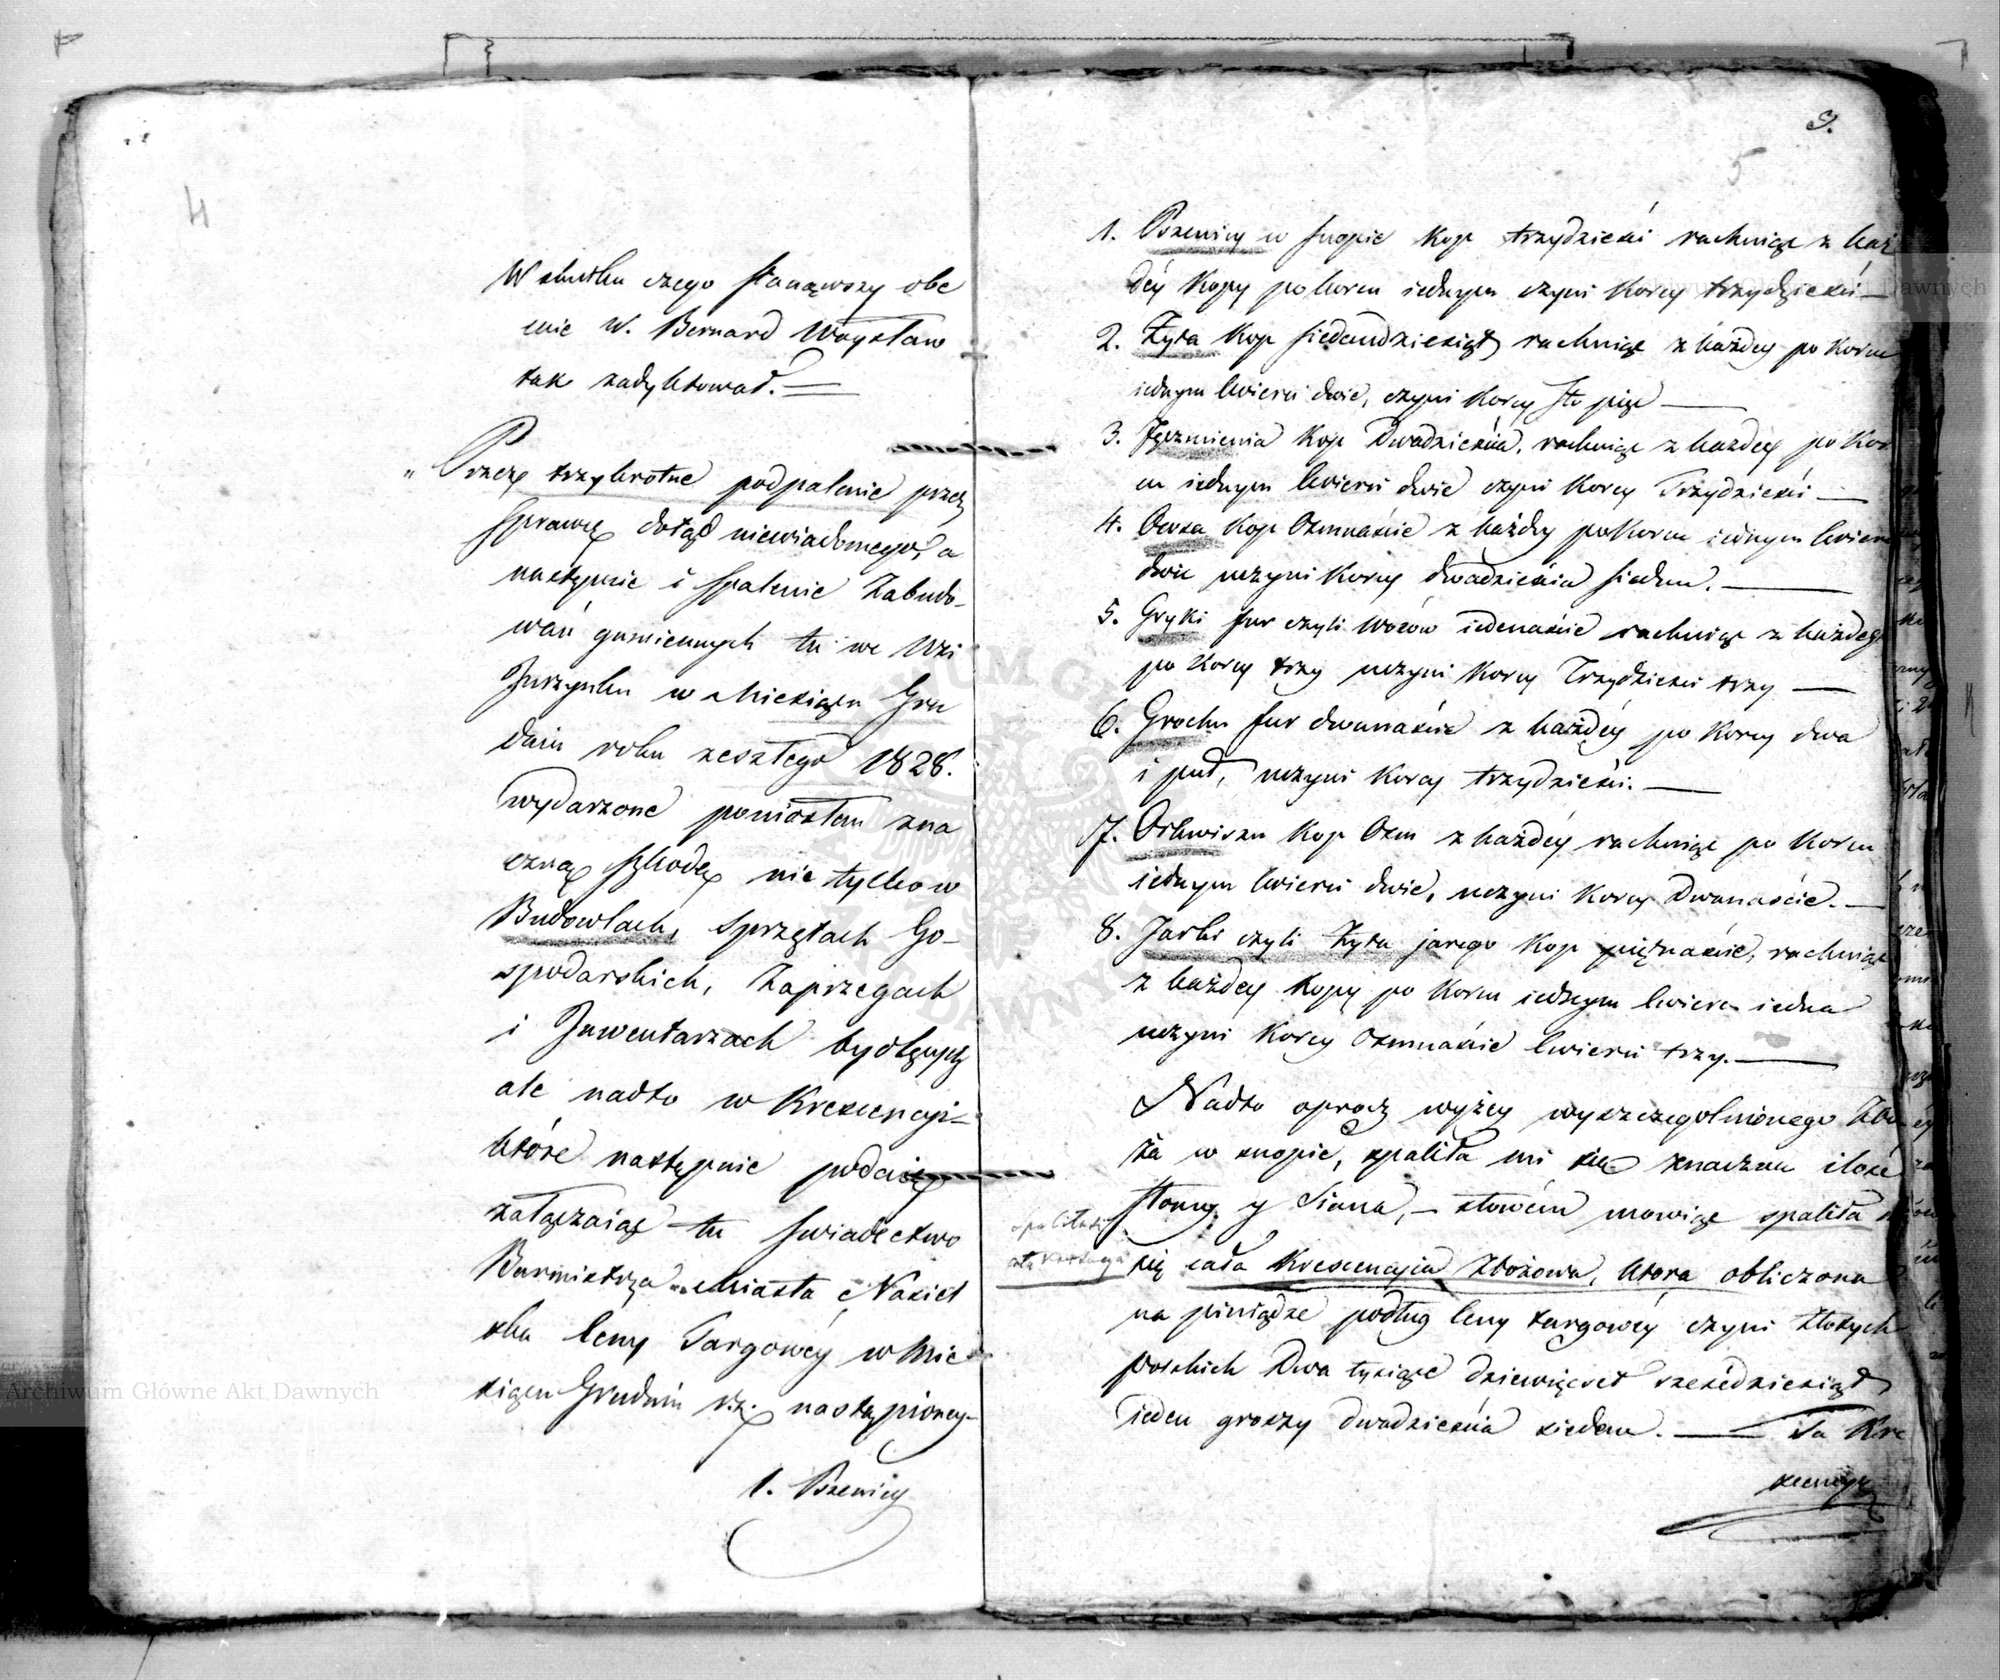 4
W skutku czego stanąwszy obe
cnie W. Bernard Woysław
tak zadyktował. —
„Przez trzykrotne podpalenie przez
Sprawcę dotąd niewiadomego, a
następnie i spalenie Zabudo-
wań gumiennych tu we Wsi
Juszynku w Miesiącu Gru
dniu roku zeszłego 1828.
wydarzone poniosłem zna
czną szkodę nie tylko w
Budowlach, Sprzętach Go-
spodarskich, Zaprzęgach
i Inwentarzach bydlęcych
ale nadto w Krescencyi—
które następnie podaię
załączaiąc tu Swiadectwo
Burmistrza Miasta Nasiel
ska Ceny Targowéy w Mie
siącu Grudniu r.z. nastąpioney—
1. Pszenicy
3.
5
1. Pszenicy w snopie Kop trzydzieści rachuiąc z każ
déy Kopy po korcu iednym czyni Korcy trzydzieści—
2. Żyta Kop siedemdziesiąt rachuiąc z każdey po Korcu
iednym ćwierci dwie, czyni Korcy Sto pięć —
3. Jęczmienia Kop Dwadzieścia, rachuiąc z każdey po Kor
cu iednym ćwierci dwie czyni Korcy Trzydzieści —
4. Owsa Kop Ośmnaście z każdey po Korcu iednym ćwierci
dwie uczyni Korcy dwadzieścia siedm. —
5. Gryki fur czyli Wozów iedenaście rachuiąc z każdego
po Korcy trzy uczyni Korcy Trzydzieści trzy —
6. Grochu fur dwanaście z każdéy po Korcy dwa
i puł, uczyni Korcy trzydzieści. —
7. Orkwiszu Kop Ośm z każdéy rachuiąc po Korcu
iednym ćwierci dwie, uczyni Korcy Dwanaście. —
8. Jarki czyli Żyta jarego Kop piętnaście, rachuiąc
z każdey Kopy po Korcu iednym ćwierć iedna
uczyni Korcy Ośmnaście ćwierci trzy. —
Nadto oprocz wyżey wyszczegolnionego Zbo
ża w snopie, spaliła mi się znaczna ilość
Słomy y Siana, — słowem mowiąc spaliła
się cała Krescencyia Zbożowa, ktora obliczona
na piniądze podług Ceny targowéy czyni Złotych
polskich Dwa tysiące dziewięćset sześćdziesiąt
ieden groszy dwadzieścia siedem. — Ta Kre
scencya